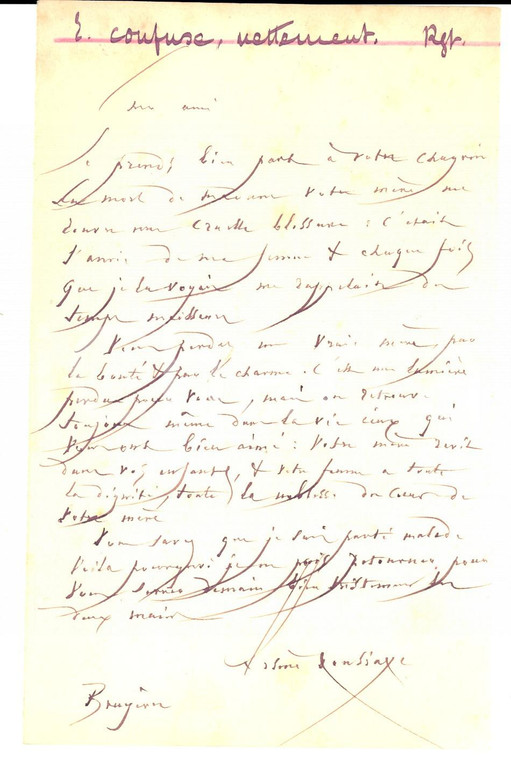 E. confuse, nettement. Rgt.
Mon ami
Je prends bien part à votre chagrin
La mort de madame votre mère me
rouvre une cruelle blessure : c'était
l'amie de ma femme & chaque fois
que je la voyais me rappelait du
temps meilleur
Vous perdez une vraie mère, par
la bonté & par le charme. C'est une lumière
perdue pour vous, mais on retrouve
toujours même dans la vie ceux qui
vous ont bien aimé : Votre mère revit
dans vos enfants, & votre femme a toute
la dignité, toute la noblesse du cœur de
votre mère
Vous savez que je suis parti malade
Voilà pourquoi je ne puis retourner pour
vous serrer demain bien tristement les
deux mains
Arsène Houssaye
Bruyères